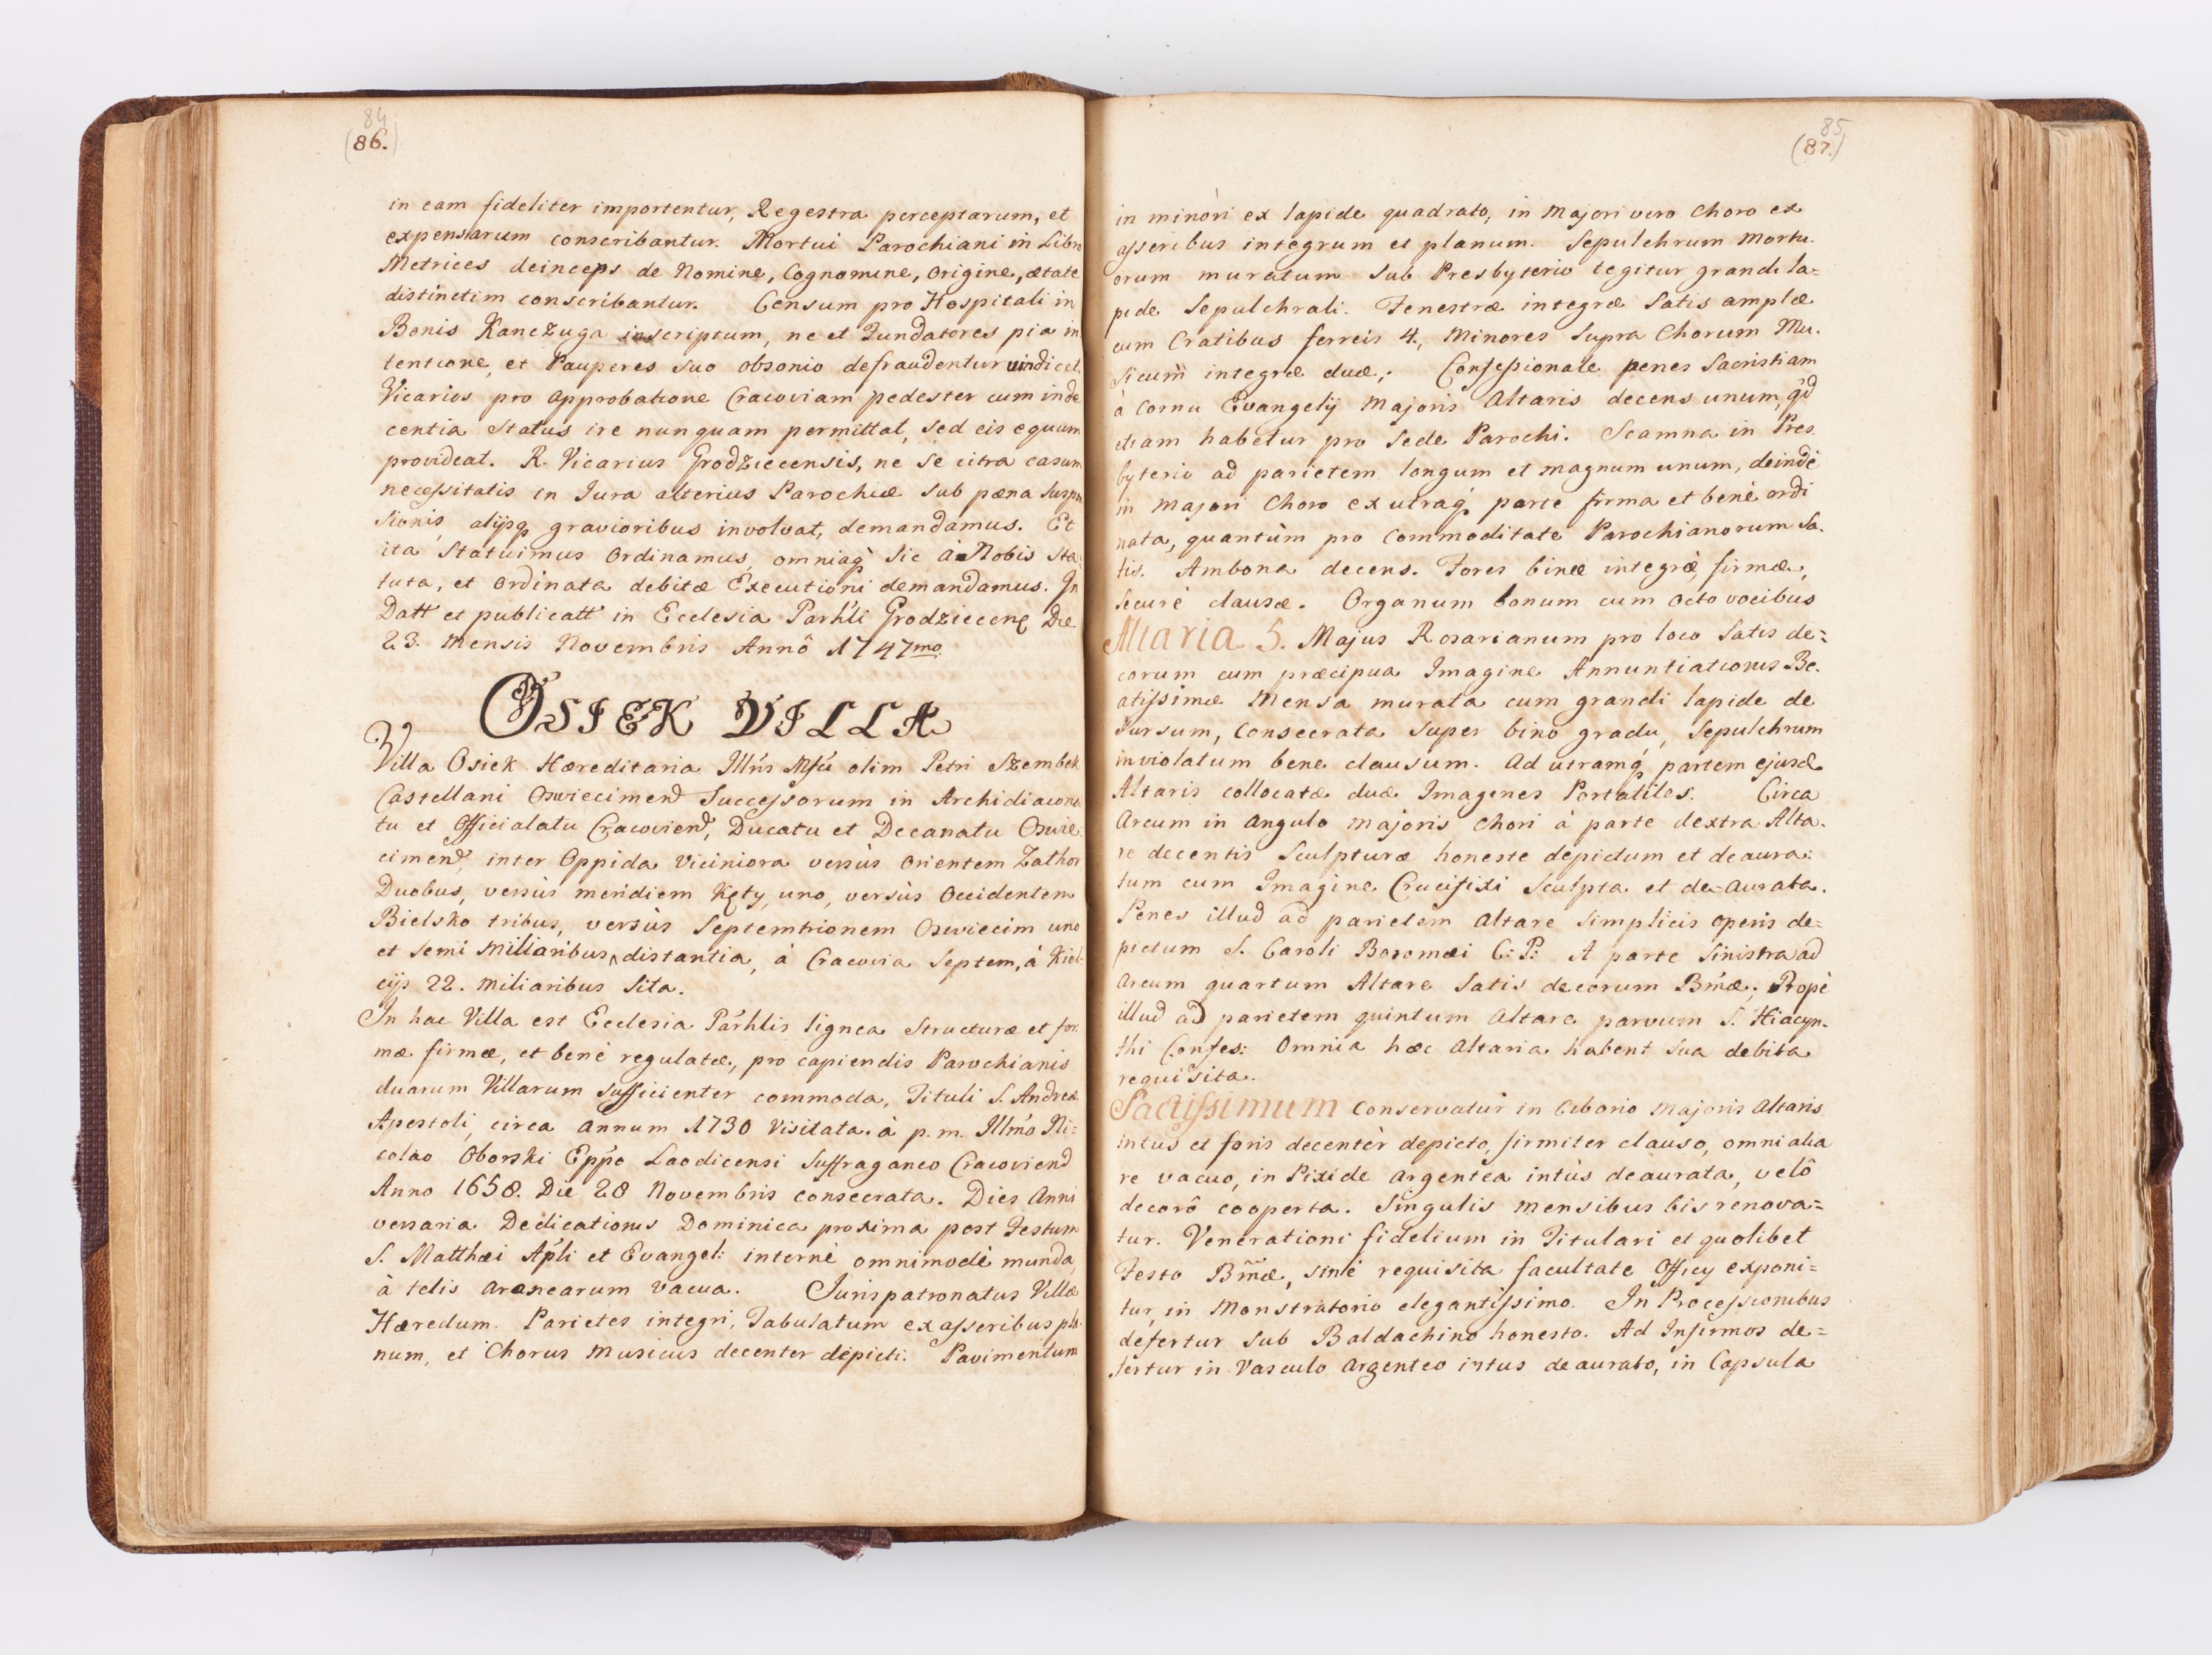 84
(86.)
in eam fideliter importentur, Regestra perceptarum, et
expensarum conscribantur. Mortui Parochiani in Libro
Metrices deinceps de Nomine, Cognomine, Origine, ætate
distinctim conscribantur. Censum pro Hospitali in
Bonis Kanczuga inscriptum, ne et Fundatores pia in
tentione, et Pauperes suo obsonio defraudentur vindicet.
Vicarios pro approbatione Cracoviam pedester cum inde
centia Status ire nunquam permittat, sed eis equum
provideat. R. Vicarius Grodziecensis, ne se citra casum
necessitatis in Jura alterius Parochiæ sub pæna suspen
sionis, alijsq; gravioribus involvat, demandamus. Et
ita Statuimus Ordinamus, omniaq; sic à Nobis sta
tuta, et ordinata debitæ Executioni demandamus. In
Datt et publicatt in Ecclesia Parhli Grodziecen Die
23. Mensis Novembris Annô 1747mo.
OSIEK VILLA
Villa Osiek Hæreditaria Illris Mfci olim Petri Szembek
Castellani Oswiecimens Successorum in Archidiacona
tu et Officialatu Cracoviens, Ducatu et Decanatu Oswie
cimens, inter Oppida viciniora versùs Orientem Zathor
Duobus, versùs meridiem Kęty, uno, versùs Occidentem
Bielsko tribus, versùs Septemtrionem Oswiecim uno
et semi Milliaribus distantia, à Cracovia Septem, à Kiel
cijs 22. miliaribus sita.
In hac Villa est Ecclesia Parhlis lignea structuræ et for
mæ firmæ, et benè regulatæ, pro capiendis Parochianis
duarum Villarum sufficienter commoda, Tituli S. Andreæ
Apostoli, circa annum 1730 Visitata à p. m. Illmo Ni=
colao Oborski Eppo Laodicensi Suffraganeo Cracoviens
Anno 1658. Die 28 Novembris consecrata. Dies Anni
versaria Dedicationis Dominica proxima post Festum
S. Matthæi Apli et Evangel: internè omnimodè munda,
à telis aranearum vacua. Jurispatronatus Villæ
Hæredum. Parietes integri, Tabulatum ex asseribus pla
num, et Chorus Musicus decenter depicti. Pavimentum
85
(87.)
in minori ex lapide quadrato, in Majori vero Choro ex
asseribus integrum et planum. Sepulchrum Mortu.
orum muratum sub Presbyterio tegitur grandi la=
pide Sepulchrali. Fenestræ integræ satis amplæ
cum Cratibus ferreis 4., Minores supra Chorum Mu.
sicum integræ duæ,: Confessionale penes Sacristiam
à Cornu Evangelij Majoris Altaris decens unum, qd
etiam habetur pro Sede Parochi. Scamna in Pres
byterio ad parietem longum et magnum unum, deindè
in Majori Choro ex utraq; parte firma et benè ordi
nata, quantùm pro Commoditate Parochianorum sa.
tis. Ambona decens. Fores binæ integræ, firmæ,
securè clausæ. Organum bonum cum Octo vocibus
Altaria 5. Majus Rosarianum pro loco satis de=
corum cum præcipua Imagine Annuntiationis Be.
atissimæ Mensa murata cum grandi lapide de
sursum, Consecrata super bino gradu, Sepulchrum
inviolatum bene clausum. Ad utramq; partem ejusd
Altaris collocatæ duæ Imagines Portatiles. Circa
Arcum in angulo majoris Chori à parte dextra Alta.
re decentis Sculpturæ honeste depictum et deaura:
tum cum Imagine Crucifixi Sculpta et de=aurata.
Penes illud ad parietem Altare simplicis operis de=
pictum S. Caroli Boromæi C: P: A parte sinistra ad
Arcum quartum Altare satis decorum Bmæ; Propè
illud ad parietem quintum Altare parvum S. Hiacyn.
thi Confes: Omnia hæc Altaria habent sua debita
requisita.
Sactissimum conservatur in Ciborio Majoris Altaris
intus et foris decentèr depicto, firmiter clauso, omni alia
re vacuo, in Pixide argentea intùs deaurata, velô
decorô cooperta. Singulis mensibus bis renova=
tur. Venerationi fidelium in Titulari et quolibet
Festo Bmæ, sinè requisita facultate Officij exponi=
tur, in Monstratorio elegantissimo. In Processionibus
defertur sub Baldachino honesto. Ad Infirmos de=
fertur in Vasculo argenteo intus deaurato, in Capsula